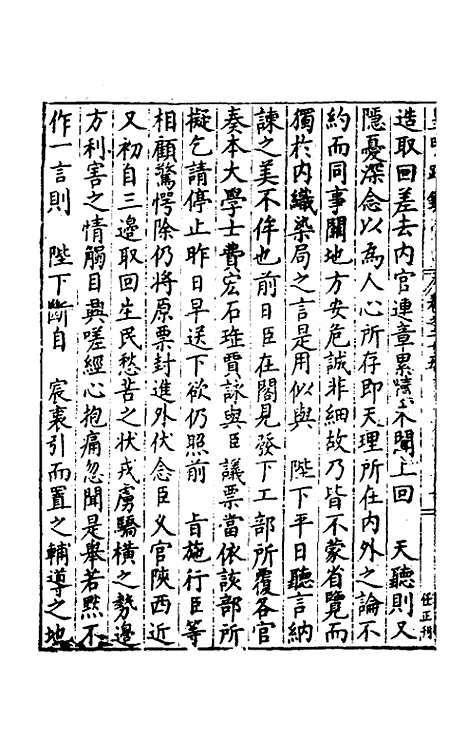 皇明疏鈔
任正刊
造取回差去内官連章累牘不聞上回　天聽則又
隱憂深念以為人心所存即天理所在内外之論不
約而同事關地方安危誠非細故乃皆不蒙省覽而
獨於内織染局之言是用似與　陛下平日聽言納
諫之美不侔也前日臣在閣見發下工部所覆各官
奏本大學士費宏石珤賈詠與臣議票當依該部所
擬乞請停止昨日早送下欲仍照前　旨施行臣等
相顧驚愕除仍將原票封進外伏念臣乂官陝西近
又初自三邊取回生民愁苦之狀戎虜驕橫之勢邊
方利害之情觸目興嗟經心抱痛忽聞是舉若黙不
作一言則　陛下斷自　宸衷引而置之輔導之地